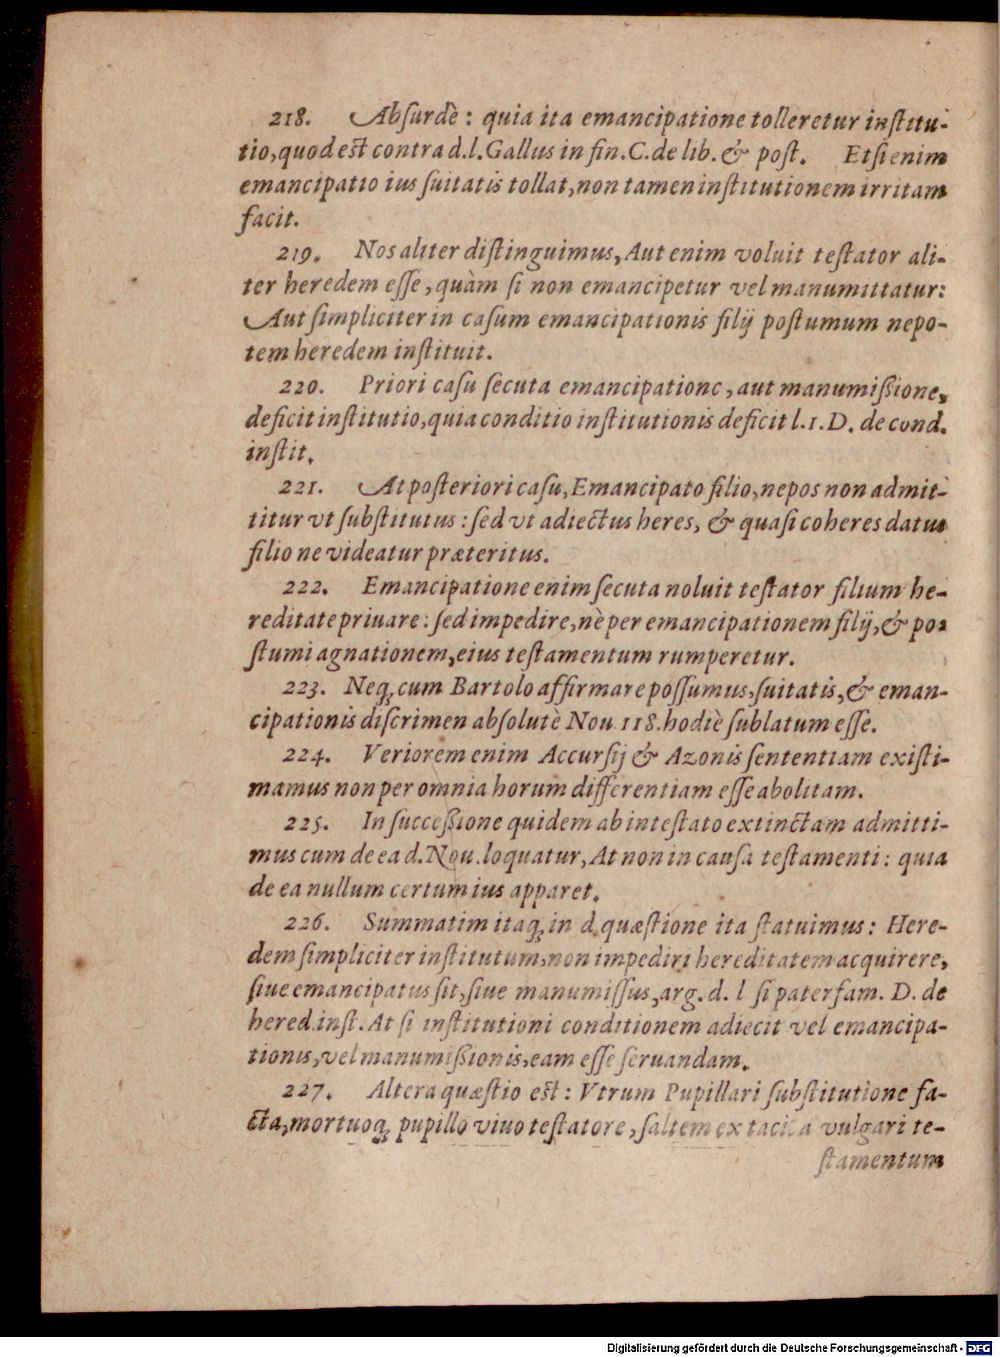 218. Abſurdè : quia ita emancipatione tolleretur inſtitu-
tio, quod eſt contra d.l. Gallus in fin. C. de lib. & poſt. Etſi enim
emancipatio ius ſuitatis tollat, non tamen inſtitutionem irritam
facit.
219. Nos aliter diſtinguimus, Aut enim voluit teſtator ali-
ter heredem eſſe, quàm ſi non emancipetur vel manumittatur:
Aut ſimpliciter in caſum emancipationis filij poſtumum nepo-
tem heredem inſtituit.
220. Priori caſu ſecuta emancipatione, aut manumißione,
deficit inſtitutio, quia conditio inſtitutionis deficit l.1.D. de cond.
inſtit.
221. At poſteriori caſu, Emancipato filio, nepos non admit-
titur vt ſubſtitutus : ſed vt adiectus heres, & quaſi coheres datus
filio ne videatur præteritus.
222. Emancipatione enim ſecuta noluit teſtator filium he-
reditate priuare : ſed impedire, nè per emancipationem filij, & po-
ſtumi agnationem, eius teſtamentum rumperetur.
223. Neq; cum Bartolo affirmare poſſumus, ſuitatis, & eman-
cipationis diſcrimen abſolutè Nou 118. hodiè ſublatum eſſe.
224. Veriorem enim Accurſij & Azonis ſententiam exiſti-
mamus non per omnia horum differentiam eſſe abolitam.
225. In ſucceßione quidem ab inteſtato extinctam admitti-
mus cum de ea d. Nou. loquatur, At non in cauſa teſtamenti : quia
de ea nullum certum ius apparet.
226. Summatim itaq; in d. quæſtione ita ſtatuimus : Here-
dem ſimpliciter inſtitutum, non impediri hereditatem acquirere,
ſiue emancipatus ſit, ſiue manumiſſus, arg. d. l ſi pater fam. D. de
hered. inſt. At ſi inſtitutioni conditionem adiecit vel emancipa-
tionis, vel manumißionis, eam eſſe ſeruandam.
227. Altera quæſtio eſt : Vtrum Pupillari ſubſtitutione fa-
cta, mortuoq; pupillo viuo teſtatore, ſaltem ex tacita vulgari te-
ſtamentum
Digitalisierung gefördert durch die Deutsche Forschungsgemeinschaft - DFG